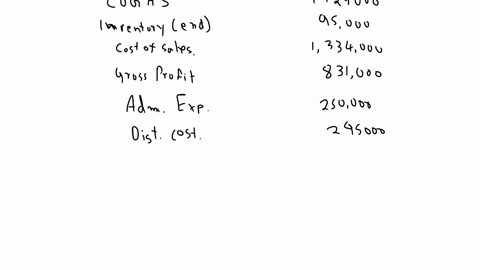 Inventory (end) 95,000
Cost of sales. 1,334,000
Gross Profit 831,000
Adm. Exp. 250,000
Dist. Cost. 295000